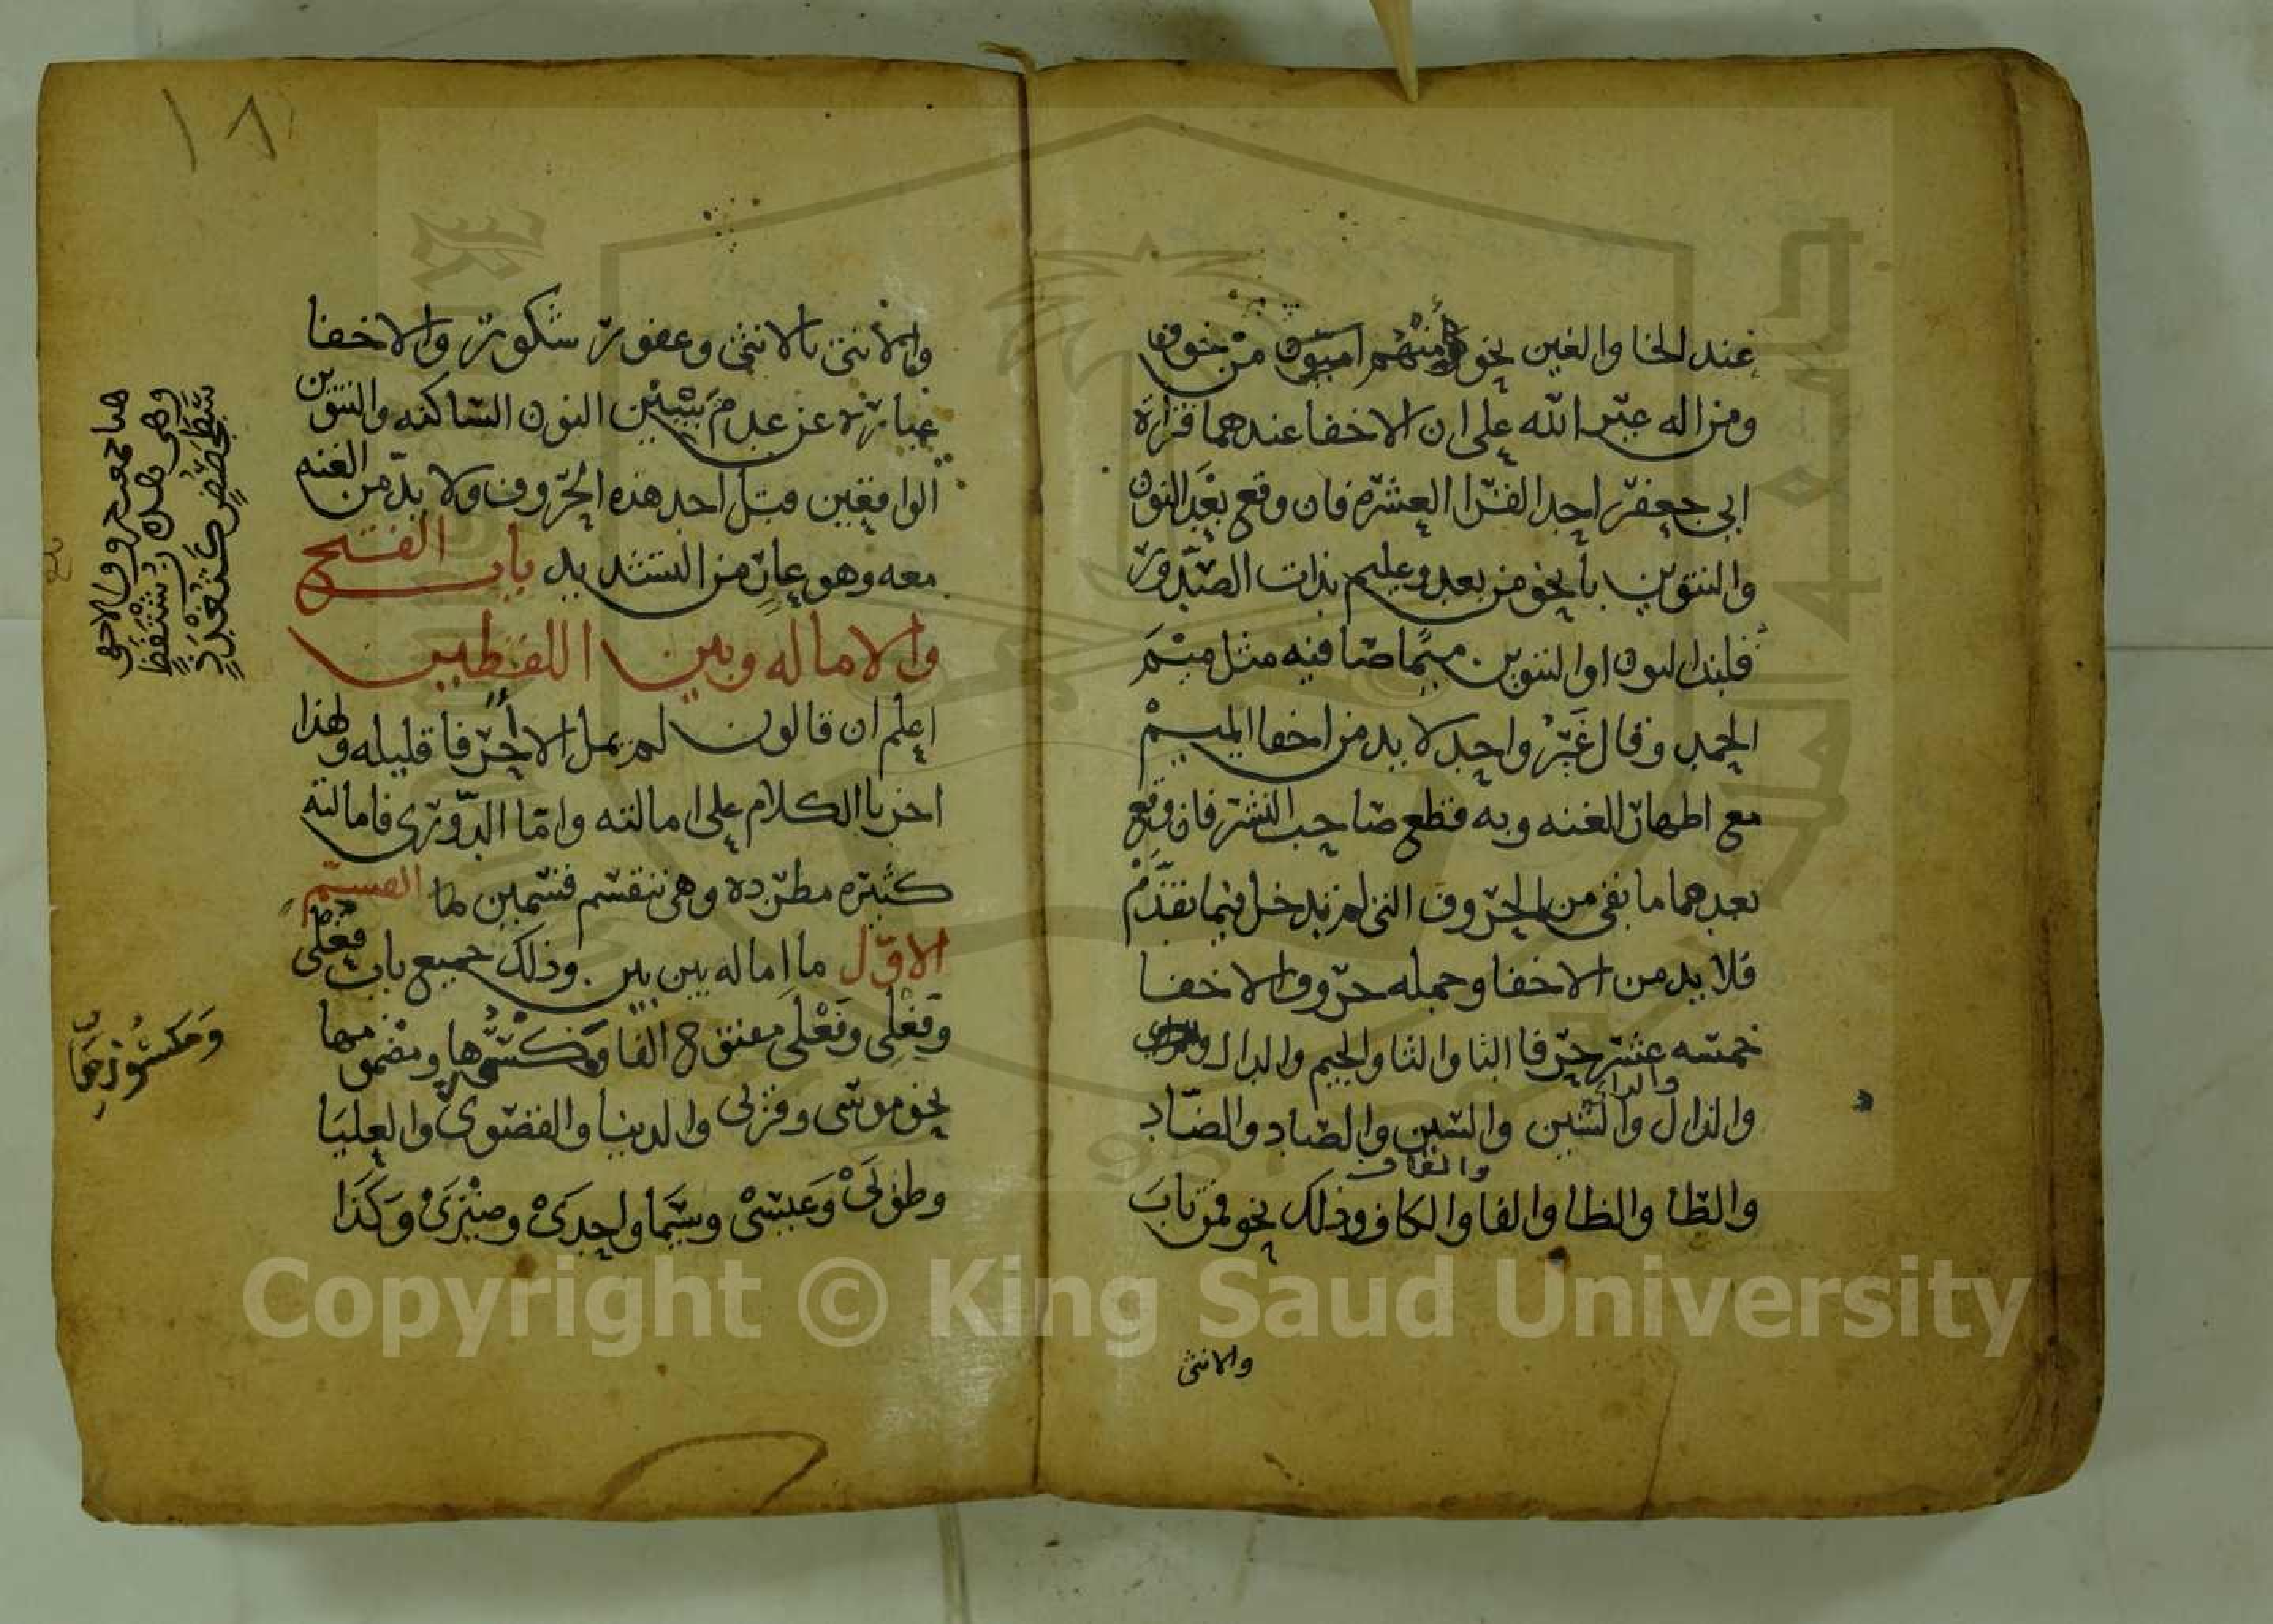 عند الخا والغين نحو ومنهم اميون من خوف
ومن اله غير الله على ان الاخفا عندهما قراة
ابي جعفر احد القرا العشره فان وقع بعد النون
والتنوين بأ نحو من بعد وعليم بذات الصدور
فلبدل النون او التنوين ميما صافيه مثل ميم
الحمد وقال غير واحد لا بد من اخفا الميم
مع اظهار الغنه وبه قطع صاحب النشر فان وقع
بعدهما ما بقى من الحروف التى لم تدخل فيما تقدم
فلا بد من الاخفا وجمله حروف الاخفا
خمسه عشر حرفا التا والثا والجيم والدال
والذال والزاى والشين والسين والصاد والضاد
والطا والظا والفا والقاف والكاف وذلك نحو فمن تاب
والانثى
١٨
والانثى بالانثى وغفور شكور والاخفا
عبارة عن عدم تبيين النون الساكنه والتنوين
الواقعين قبل احد هذه الحروف ولا بد من الغنه
معه وهو عار من التشديد باب الفتح
والاماله وبين اللفظين
اعلم ان قالون لم يمل الا احرفا قليله ولهذا
اخرنا الكلام على امالته واما الدورى فامالته
كثيره مطرده وهى تنقسم قسمين القسم
الاول ما اماله بين بين وذلك جميع باب فعلى
وفعلى وفعلى مفتوح الفا ومكسورها ومضمومها
نحو موسى وقربى والدنيا والقصوى والعليا
وطوبى وعيسى وسيما واحدى وضيزى وكذا
ومكسورها